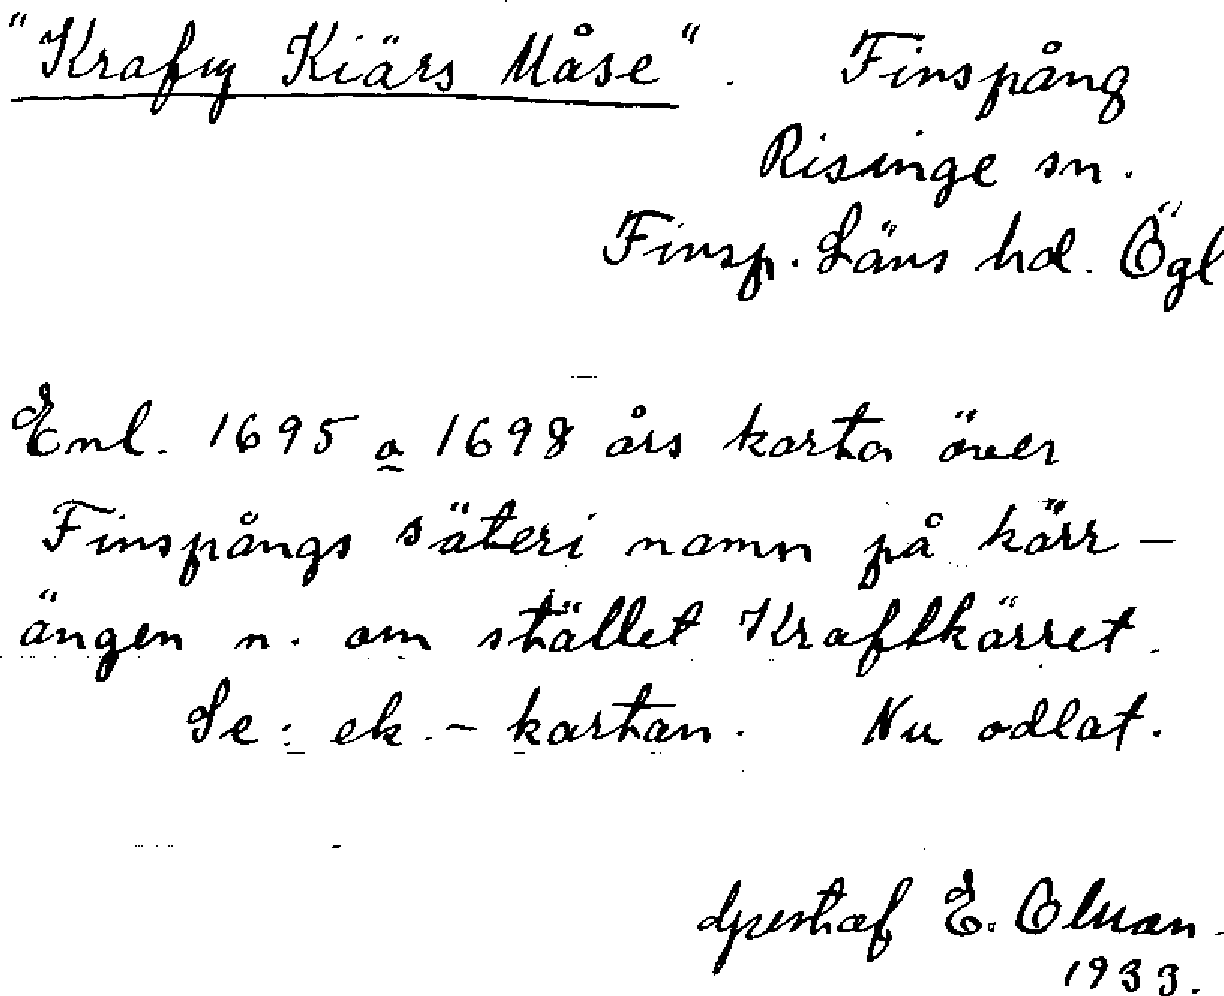 "Krafty Kiärs Måse". Finspång
Risinge sn.
Finsp. Läns hd. Ögl
Enl. 1695 a 1698 års karta över
Finspångs säteri namn på kärr-
ängen n. om stället Kraftkärret.
Se: ek.-kartan. Nu odlat.
Gustaf E.
1933.